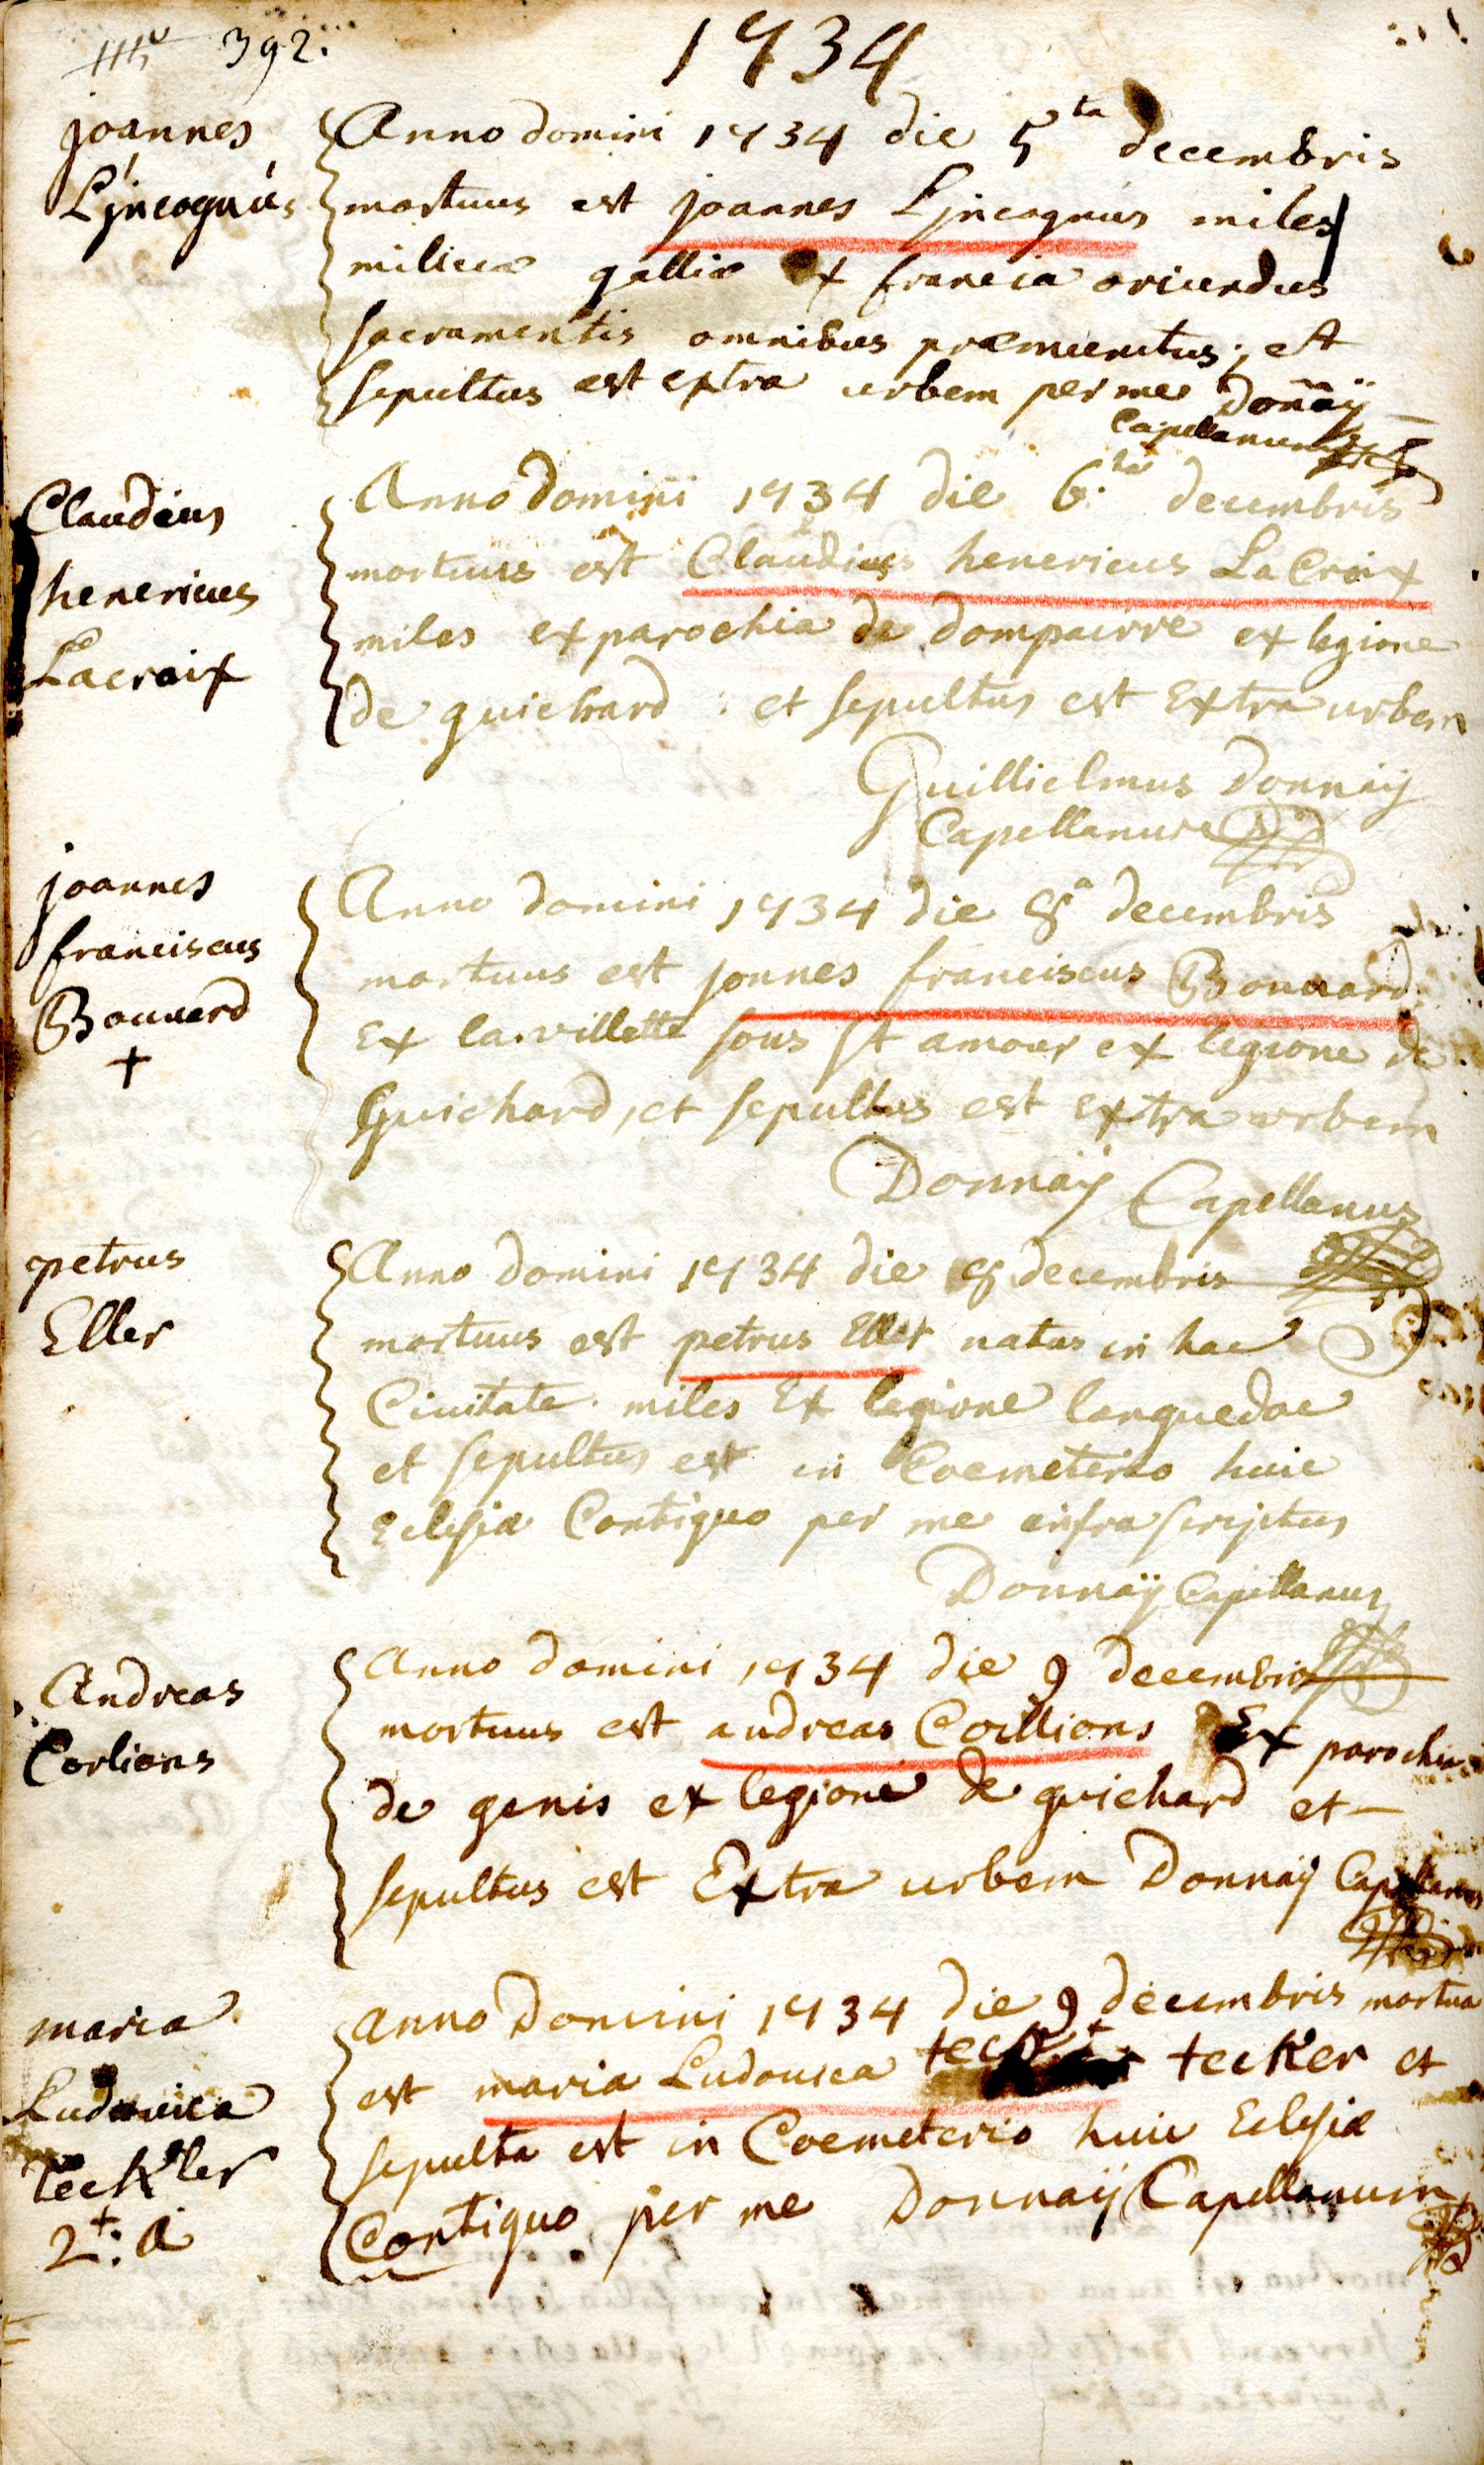 392.
1734
joannes
Ljncognús
Anno domini 1734 die 5ta decembris
mortuus est joannes Ljncognús miles
miliciæ galliæ ex francia oriundus
sacramentis omnibus præmunitus; et
sepultus est extra urbem per me donnaÿ
Capellanum
Claudius
henericus
Lacroix
Anno Domini 1734 die 6ta decembris
mortuus est Claudius henericus La Croix
miles ex parochia de dompairre ex legione
de guichard : et sepultus est Extra urbem
Guillielmus Donnaÿ
Capellanus
joannes
franciscus
Bouuard
+
Anno domini 1734 die 8a decembris
mortuus est jonnes franciscus Bouuard
Ex la villette sous st amour ex legione de
Guichard, et sepultus est extra urbem
Donnaÿ Capellanus
petrus
Eller
Anno domini 1734 die 8 decembris
mortuus est petrus Eller natus in hac
Ciuitate miles Ex legione languedoc
et sepultus est in Coemeterio huic
Eclesiæ Contiguo per me infra scriptus
Donnaÿ Capellanus
Andreas
Corlions
Anno domini 1734 die 9 decembris
mortuus est andreas Coillions Ex parochia
de genis ex legione de guichard et
sepultus est Extra urbem Donnaÿ Capellanus
maria
Ludouica
teckler
2t: a
anno Domini 1734 die 9 decembris mortua
est maria Ludouica tecker et
sepulta est in Coemeterio huic Eclesiæ
Contiguo per me Donnaÿ Capellanum